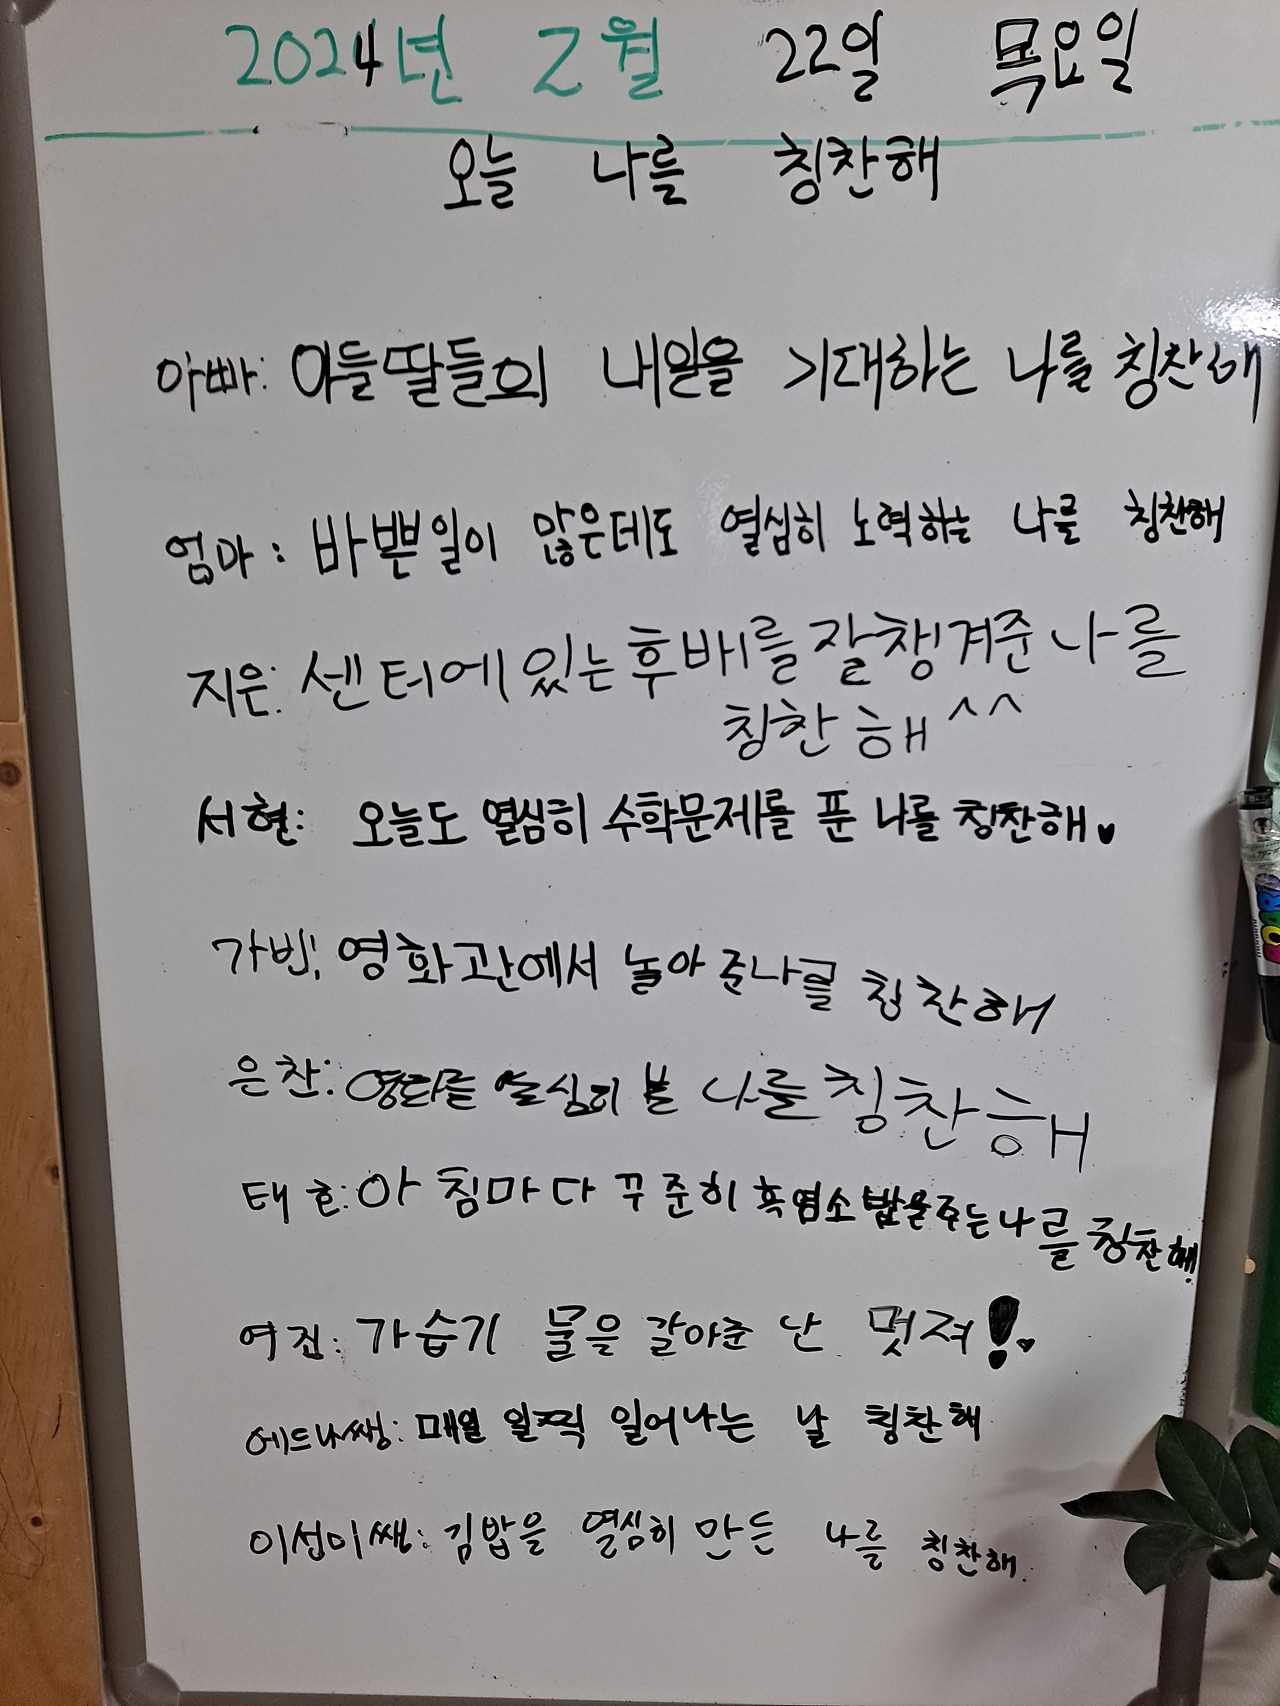 2024년 2월 22일 목요일
오늘 나를 칭찬해
아빠: 아들딸들의 내일을 기대하는 나를 칭찬해
엄마: 바쁜일이 많은데도 열심히 노력하는 나를 칭찬해
지은: 센터에 있는 후배를 잘챙겨준 나를
칭찬해 ^^
서현: 오늘도 열심히 수학문제를 푼 나를 칭찬해♥
가빈: 영화관에서 놀아준나를 칭찬해
은찬: 영화를 열심히 본 나를 칭찬해
태호: 아침마다 꾸준히 흑염소밥을주는나를 칭찬해!
여진: 가습기 물을 갈아준 난 멋져!♥
에드나쌤: 매일 일찍 일어나는 날 칭찬해
이섭이쌤: 김밥을 열심히 만든 나를 칭찬해.
BOARD